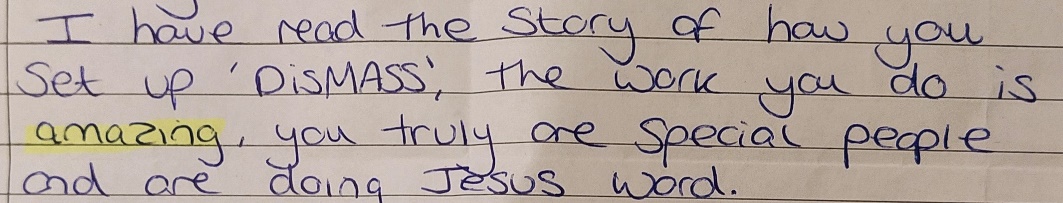 I have read the Story of how you
Set up 'DiSMASS', the work you do is
amazing, you truly are special people
and are doing Jesus word.